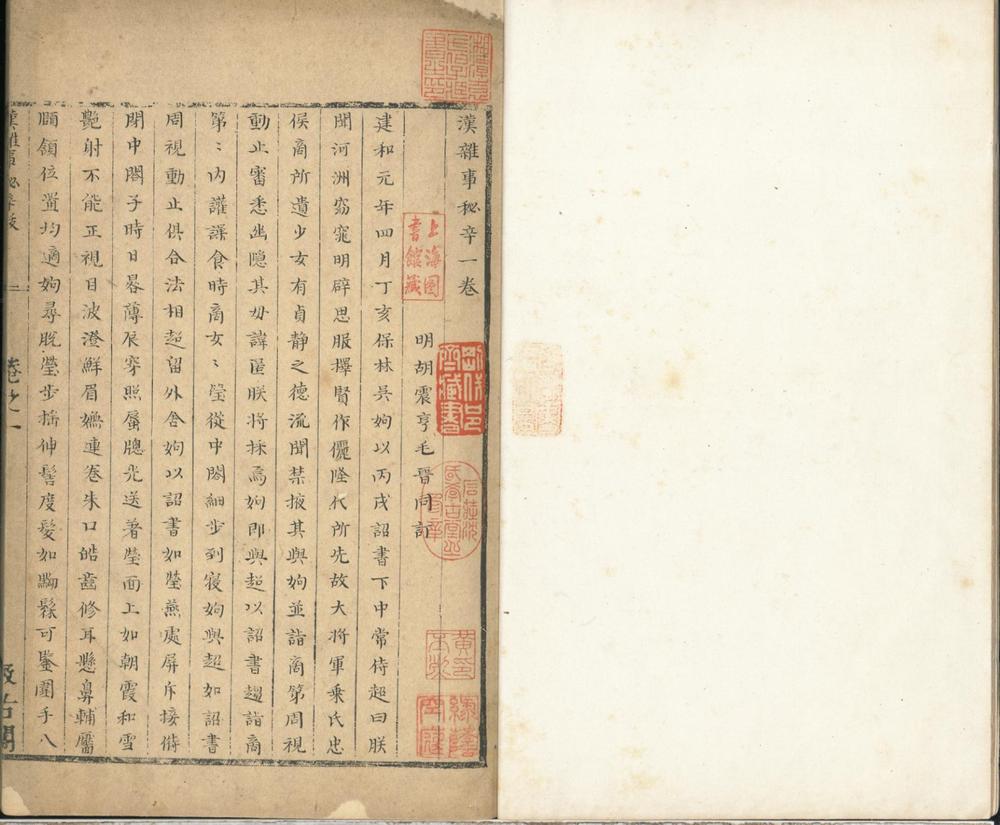 漢雜事秘辛一卷
明胡震亨毛晉同訂
建和元年四月丁亥保林吳姁以丙戌詔書下中常侍超曰朕
聞河洲窈窕明辟思服擇賢作儷隆代所先故大將軍乘氏忠
侯商所遺少女有貞静之德流聞禁掖其與姁並詣商第周視
動止審悉幽隱其毋諱匿朕將採焉姁即與超以詔書趨詣商
第〻内讙譁食時商女〻瑩從中閤細步到寢姁與超如詔書
周視動止俱合法相超留外舍姁以詔書如瑩燕處屏斥接侍
閉中閤子時日晷薄辰穿照蜃牕光送著瑩面上如朝霞和雪
艷射不能正視目波澄鮮眉嫵連卷朱口皓齒修耳懸鼻輔靨
頤頷位置均適姁尋脱瑩步摇伸髻度髮如黝髹可鑒圍手八
漢雜事秘辛 卷之一 汲古閣
上海图
書館藏